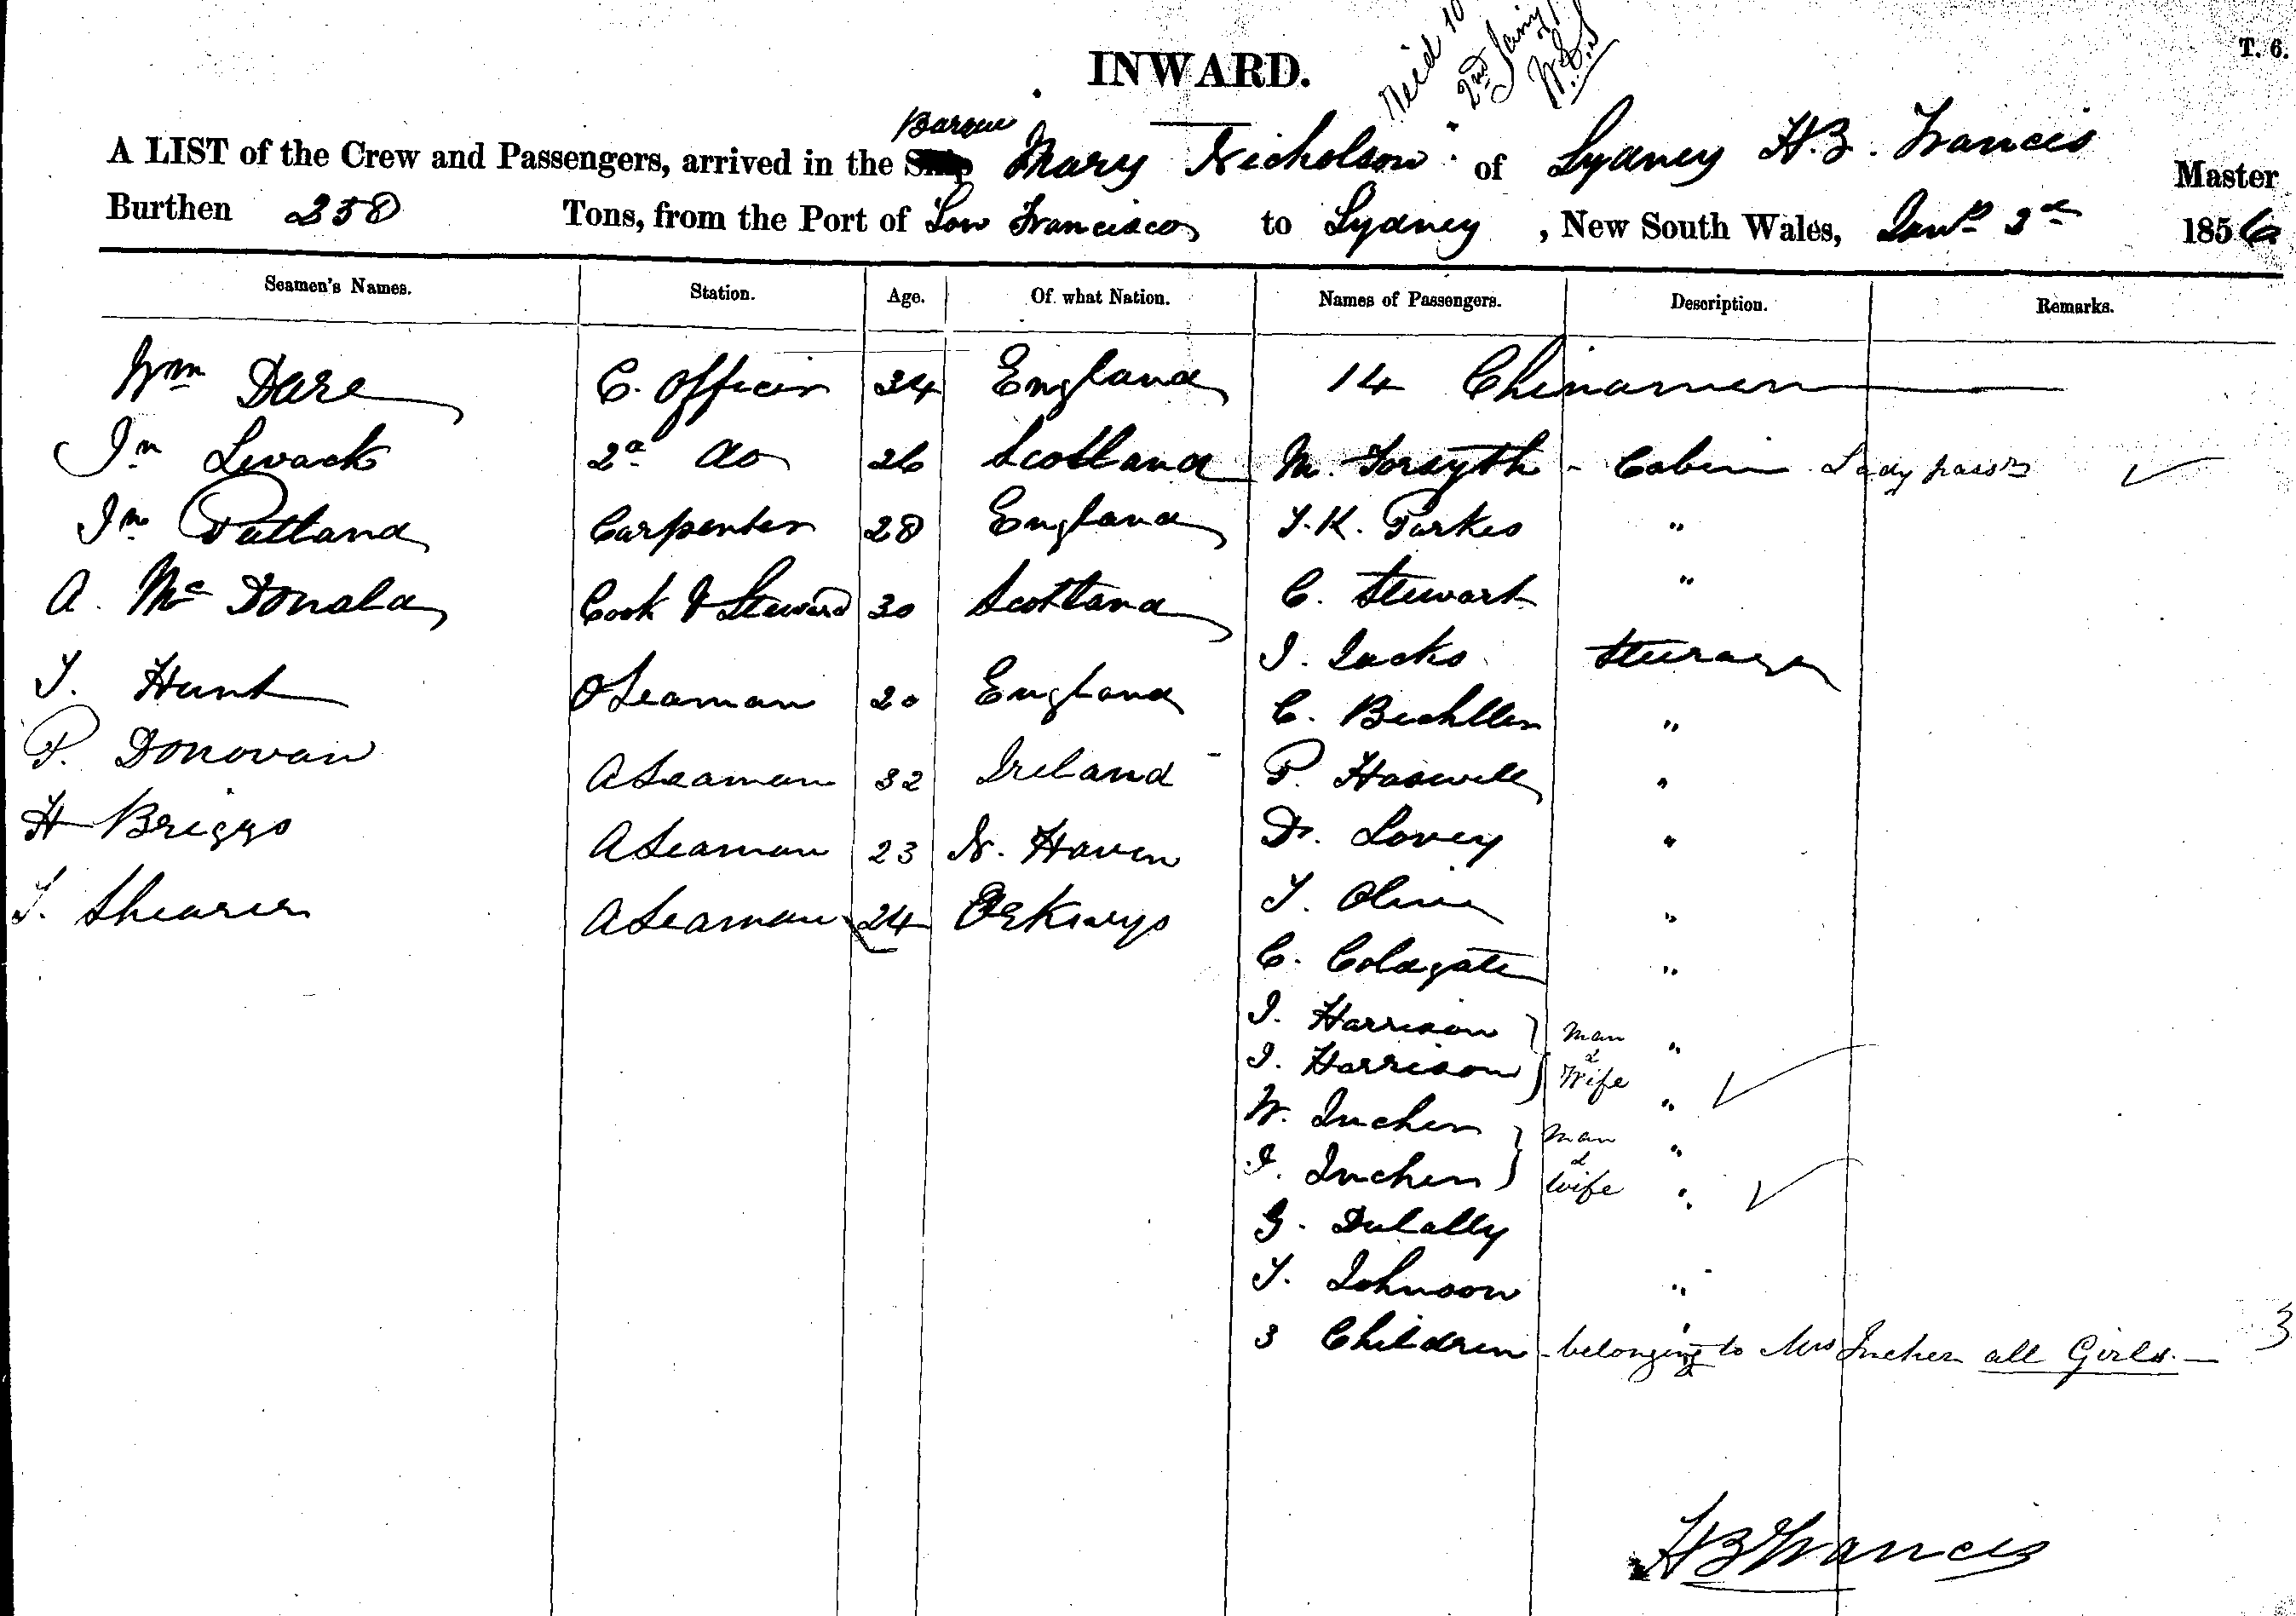 INWARD.
T. 6.
2nd
Barque
A LIST of the Crew and Passengers, arrived in the Ship Mary Nicholson of Sydney H.B. Francis Master
Burthen 258 Tons, from the Port of San Francisco to Sydney, New South Wales, Jany 2d 1856
Seamen's Names. Station. Age. Of what Nation. Names of Passengers. Description. Remarks.
Wm Dare C. Officer 34 England 14 Chinamen
Jn Levack 2d do 26 Scotland M. Forsyth - Cabin Lady
Jn Putland Carpenter 28 England T.K. Parkes "
A. Mc Donald Cook & Steward 30 Scotland C. Stewart "
T. Hunt O Seaman 20 England J. Jacks Steerage
P. Donovan A Seaman 32 Ireland C. "
H Briggs A Seaman 23 N. Haven P. Haswell "
T. Shearer A Seaman 24 Orkneys D. Lovey "
T. Oliver "
C. Coldgate "
J. Harrison } Man "
&
J. Harrison } Wife "
W. Incher } Man "
&
J. Incher } Wife "
G. Dulally
T. Johnson "
3 Children - belonging to Mrs Incher all Girls. — 3
HB Francis